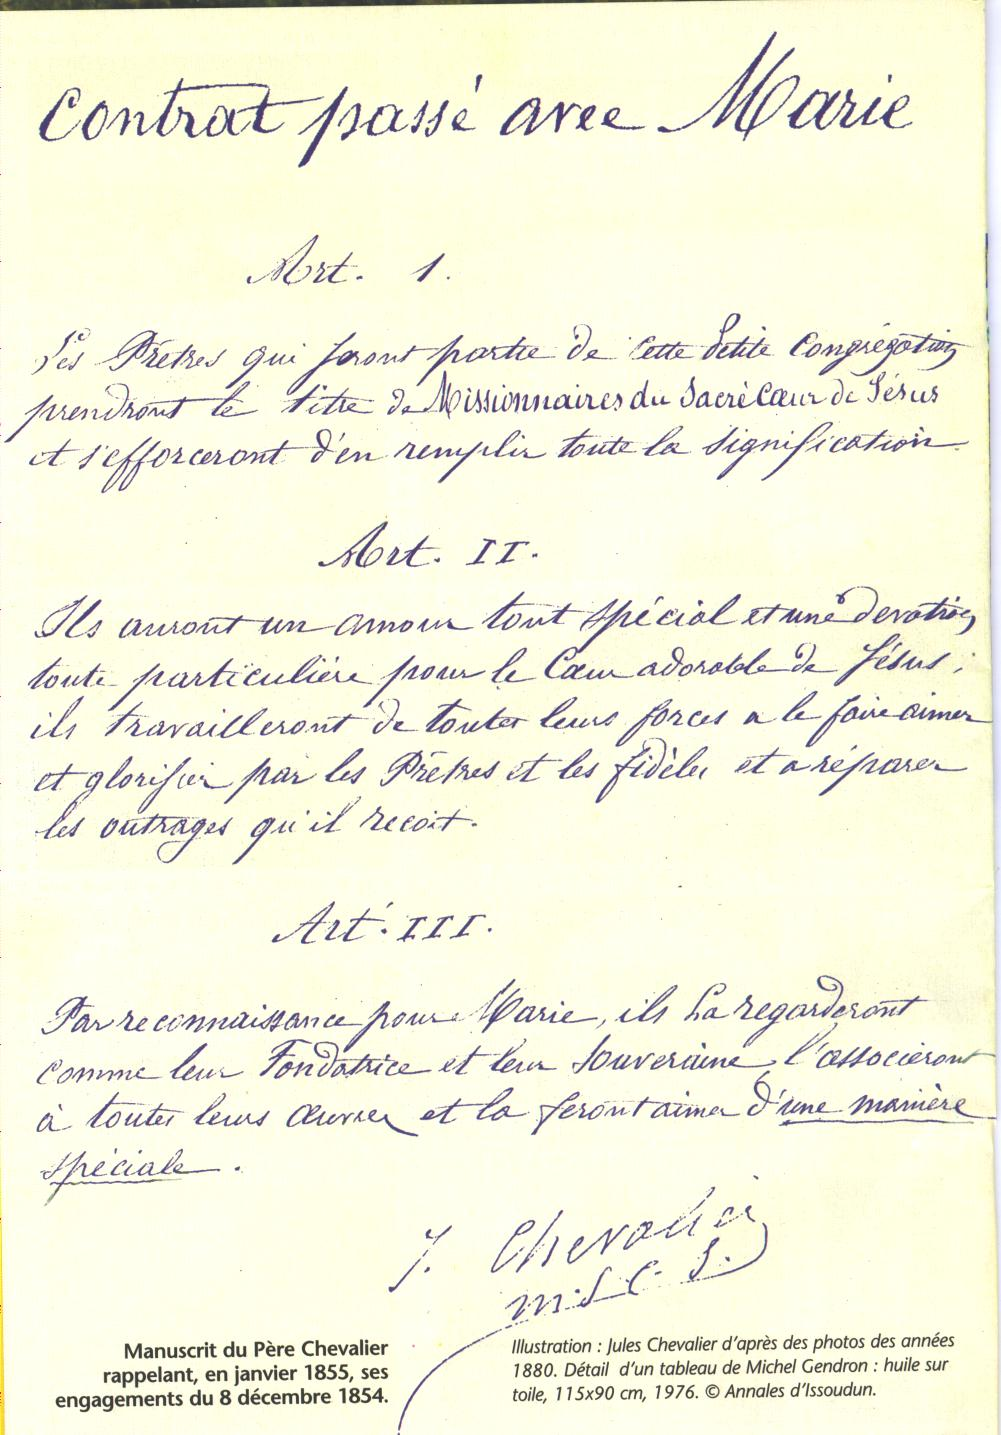 Contrat passé avec Marie
Art. 1.
Les Prêtres qui feront partie de cette Petite Congrégation
prendront le titre de Missionnaires du Sacré Cœur de Jésus
et s'efforceront d'en remplir toute la signification.
Art. II.
Ils auront un amour tout spécial et une dévotion
toute particulière pour le Cœur adorable de Jésus;
ils travailleront de toutes leurs forces a le faire aimer
et glorifier par les Prêtres et les fidèles et a réparer
les outrages qu'il reçoit.
Art. III.
Par reconnaissance pour Marie, ils La regarderont
comme leur Fondatrice et leur Souveraine, l'associeront
à toutes leurs œuvres et la feront aimer d'une manière
spéciale.
J. Chevalier
m.S.C.J.
Manuscrit du Père Chevalier
rappelant, en janvier 1855, ses
engagements du 8 décembre 1854.
Illustration : Jules Chevalier d'après des photos des années
1880. Détail d'un tableau de Michel Gendron : huile sur
toile, 115x90 cm, 1976. © Annales d'Issoudun.